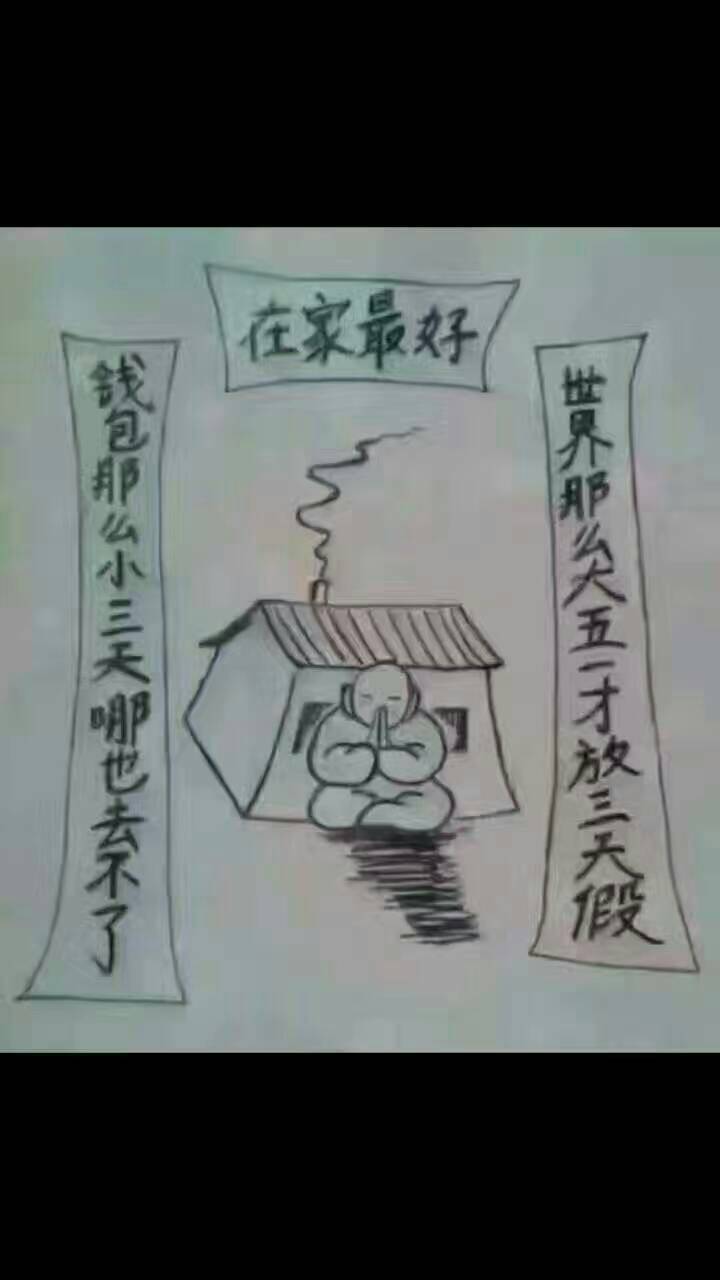 在家最好
世界那么大五一才放三天假
钱包那么小三天哪也去不了